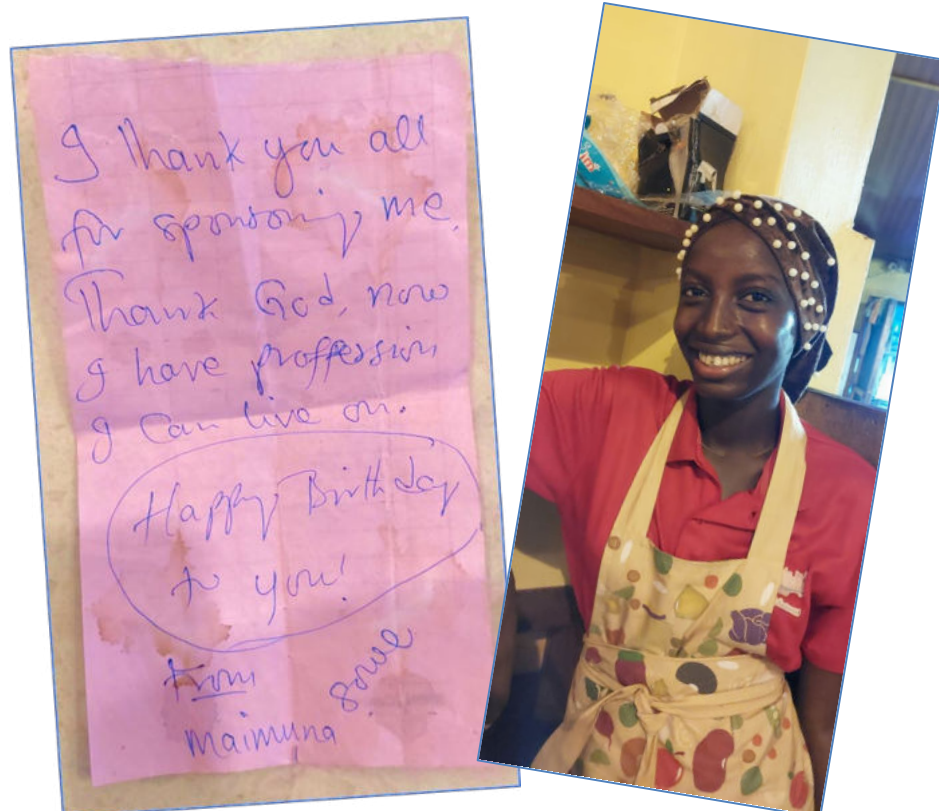 I thank you all
for sponsoring me.
Thank God, now
I have proffession
I can live on.
Happy Birthday
to you!
From
Maimuna
Sowe